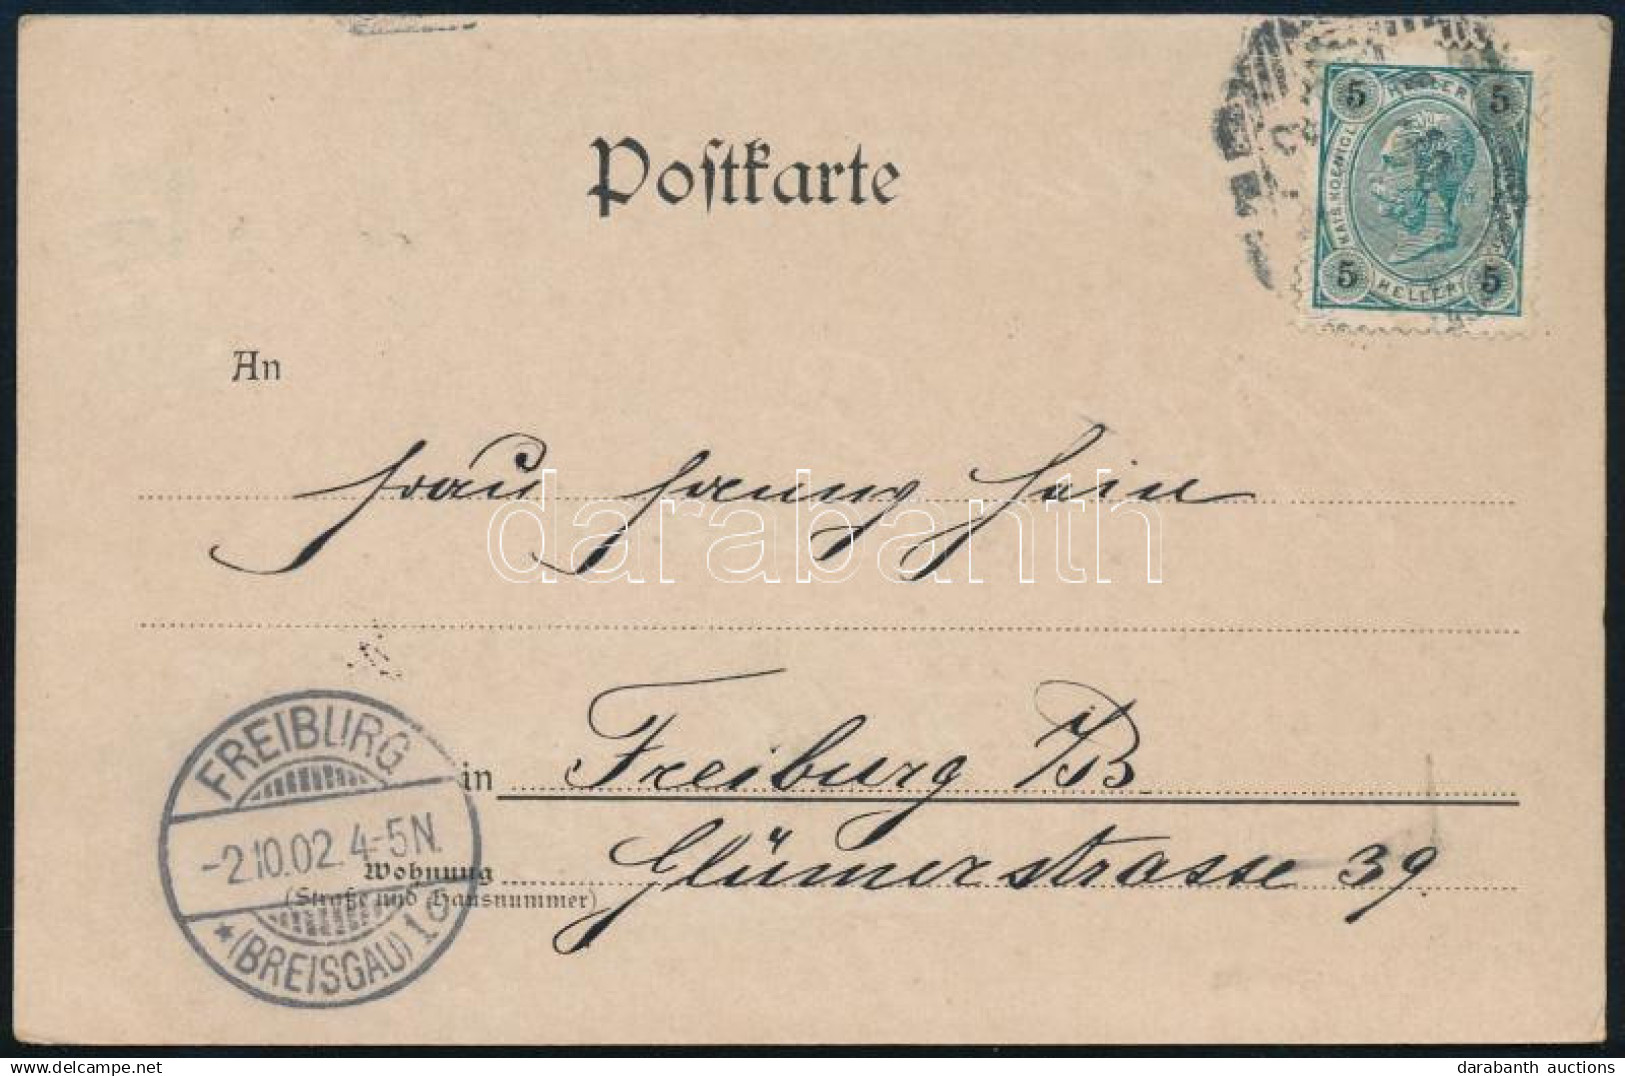 Postkarte
5 HELLER 5
KAIS. KOENIGL.
5 HELLER 5
An
Frau Fanny Hein
darabanth
in Freiburg i/B
Glümerstrasse 39.
Wohnung
(Straße und Hausnummer)
FREIBURG
-2.10.02. 4-5N.
* (BREISGAU) 1
darabanth auctions